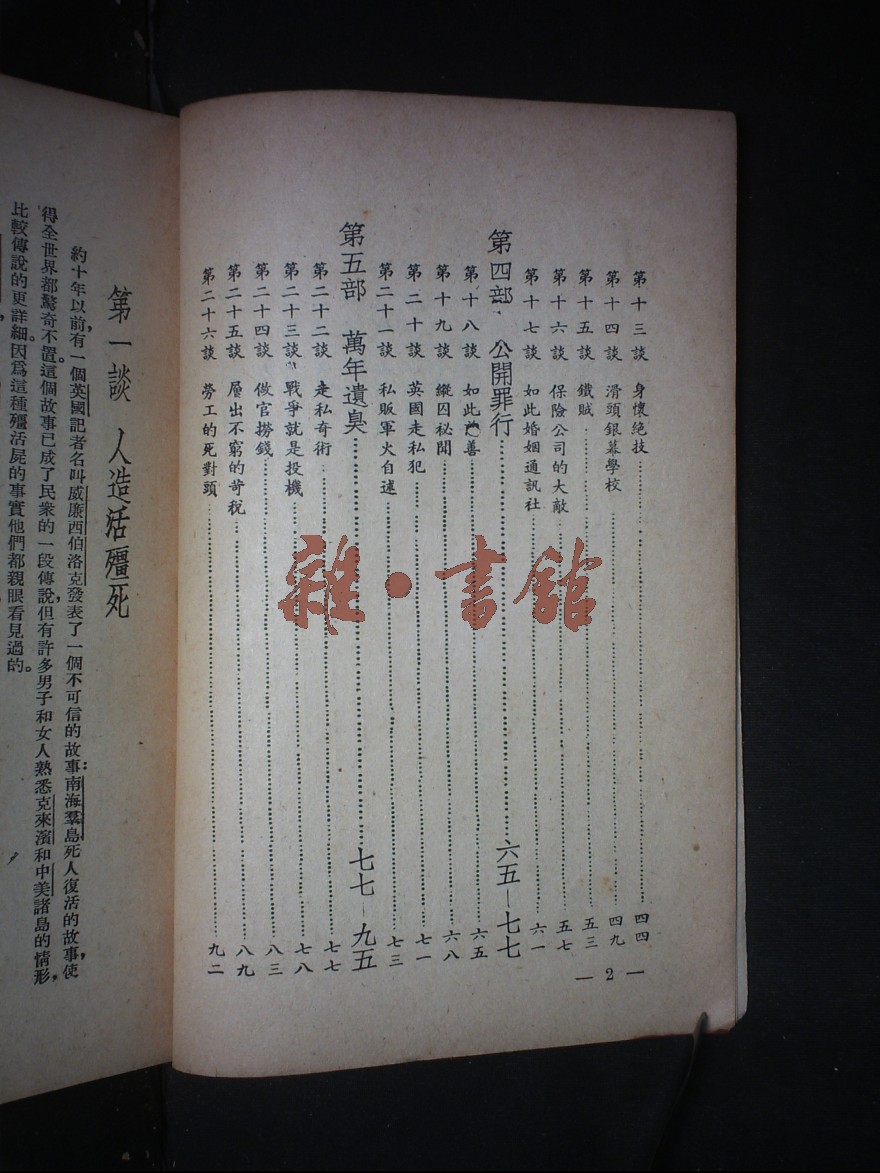 第十三談 身懷絶技 四四
第十四談 滑頭銀幕學校 四九
第十五談 鐵賊 五三
第十六談 保險公司的大敵 五七
第十七談 如此婚姻通訊社 六一
第四部 公開罪行 六五—七七
第十八談 如此慈善 六五
第十九談 縱囚祕聞 六八
第二十談 英國走私犯 七一
第二十一談 私販軍火自述 七三
第五部 萬年遺臭 七七—九五
第二十二談 走私奇術 七七
第二十三談 戰爭就是投機 七八
第二十四談 做官撈錢 八三
第二十五談 層出不窮的苛稅 八九
第二十六談 勞工的死對頭 九二
— 2 —
雜·書館
第一談 人造活殭死
約十年以前,有一個英國記者名叫威廉西伯洛克發表了一個不可信的故事:南海羣島死人復活的故事,使
得全世界都驚奇不置。這個故事已成了民衆的一段傳說,但有許多男子和女人熟悉克來濱和中美諸島的情形,
比較傳說的更詳細,因爲這種殭活屍的事實他們都親眼看見過的。